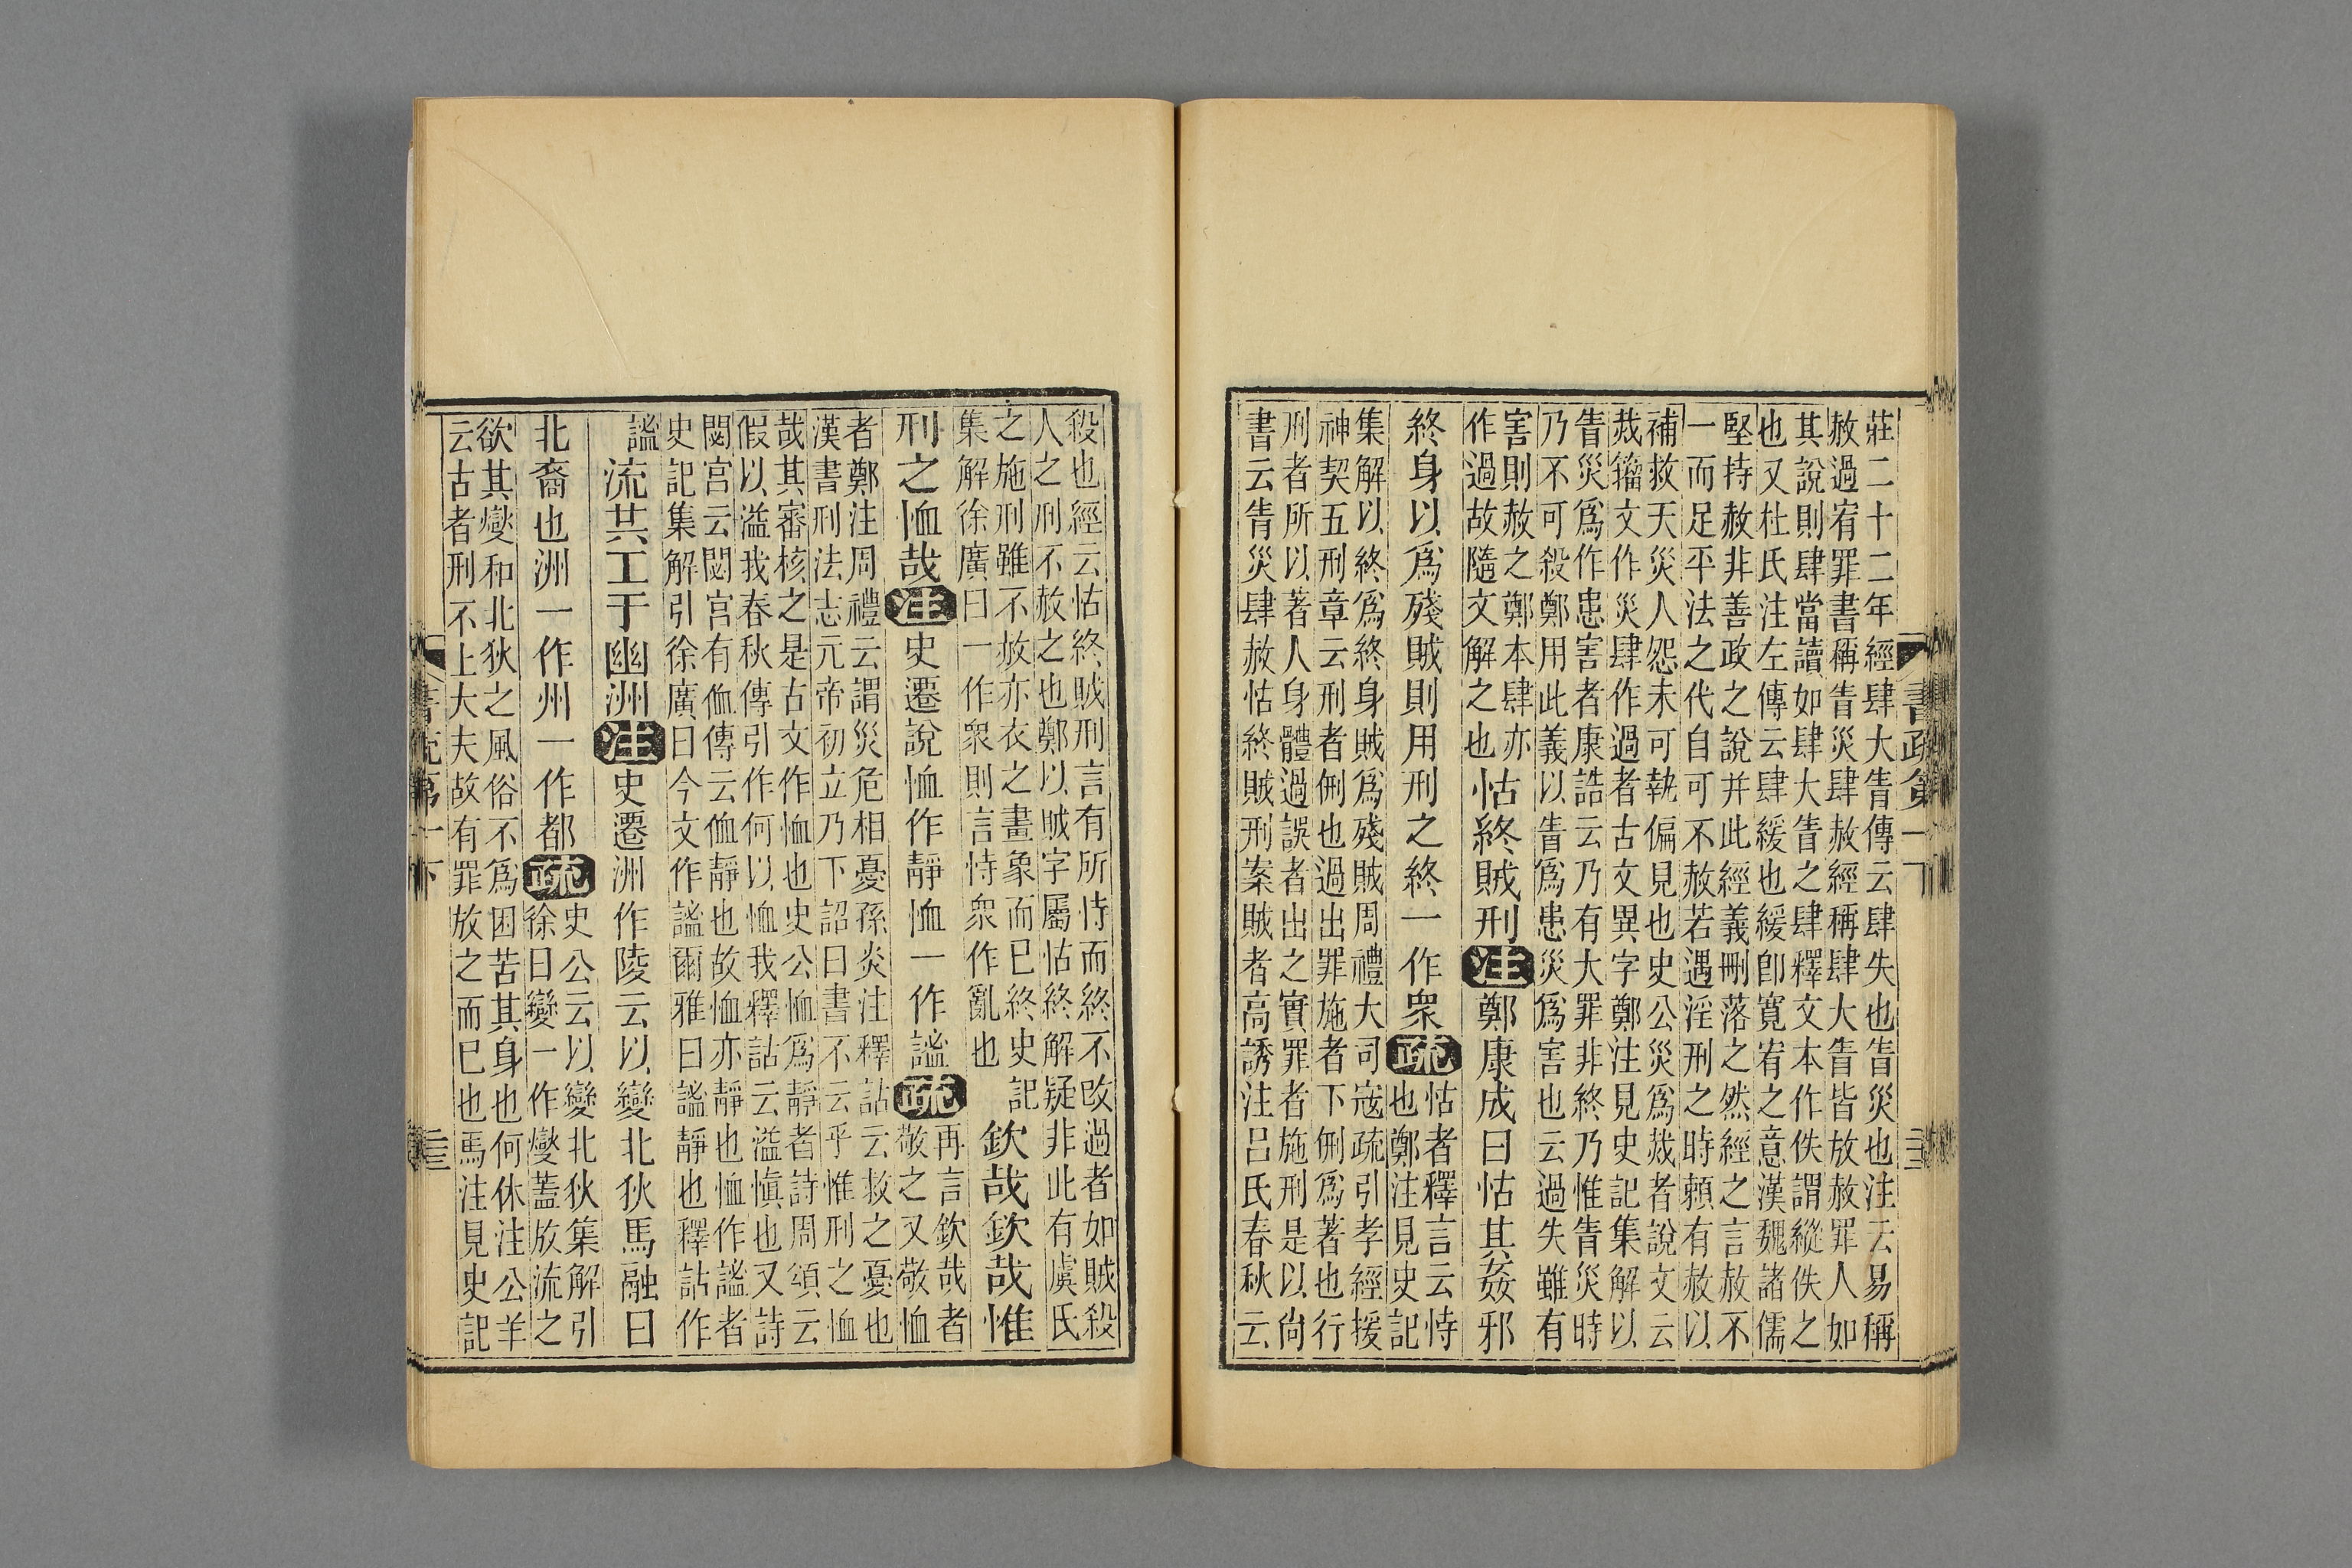 書疏第一下
莊二十二年經肆大眚傳云肆失也眚災也注云易稱
赦過宥罪書稱眚災肆赦經稱肆大眚皆放赦罪人如
其說則肆當讀如肆大眚之肆釋文本作佚謂縱佚之
也又杜氏注左傳云肆緩也緩卽寬宥之意漢魏諸儒
堅持赦非善政之說并此經義刪落之然經之言赦不
一而足平法之代自可不赦若遇淫刑之時頼有赦以
補救天災人怨未可執偏見也史公災爲烖者說文云
烖籀文作災肆作過者古文異字鄭注見史記集解以
眚災爲作患害者康誥云乃有大罪非終乃惟眚災時
乃不可殺鄭用此義以眚爲患災爲害也云過失雖有
害則赦之鄭本肆亦
作過故隨文解之也
怙終賊刑注鄭康成曰怙其姦邪
終身以爲殘賊則用刑之終一作衆疏
怙者釋言云恃
也鄭注見史記
集解以終爲終身賊爲殘賊周禮大司寇疏引孝經援
神契五刑章云刑者侀也過出罪施者下侀爲著也行
刑者所以著人身體過誤者出之實罪者施刑是以尙
書云眚災肆赦怙終賊刑案賊者高誘注呂氏春秋云
殺也經云怙終賊刑言有所恃而終不改過者如賊殺
人之刑不赦之也鄭以賊字屬怙終解疑非此有虞氏
之施刑雖不赦亦衣之畫象而已終史記
集解徐廣曰一作衆則言恃衆作亂也
欽哉欽哉惟
刑之恤哉注史遷說恤作靜恤一作謐疏
再言欽哉者
敬之又敬恤
者鄭注周禮云謂災危相憂孫炎注釋詁云救之憂也
漢書刑法志元帝初立乃下詔曰書不云乎惟刑之恤
哉其審核之是古文作恤也史公恤爲靜者詩周頌云
假以溢我春秋傳引作何以恤我釋詁云溢愼也又詩
閟宮云閟宮有侐傳云侐靜也故恤亦靜也恤作謐者
史記集解引徐廣曰今文作謐爾雅曰謐靜也釋詁作
謐
流共工于幽洲注史遷洲作陵云以變北狄馬融曰
北裔也洲一作州一作都疏
史公云以變北狄集解引
徐曰變一作燮蓋放流之
欲其燮和北狄之風俗不爲困苦其身也何休注公羊
云古者刑不上大夫故有罪放之而已也馬注見史記
書疏第一下